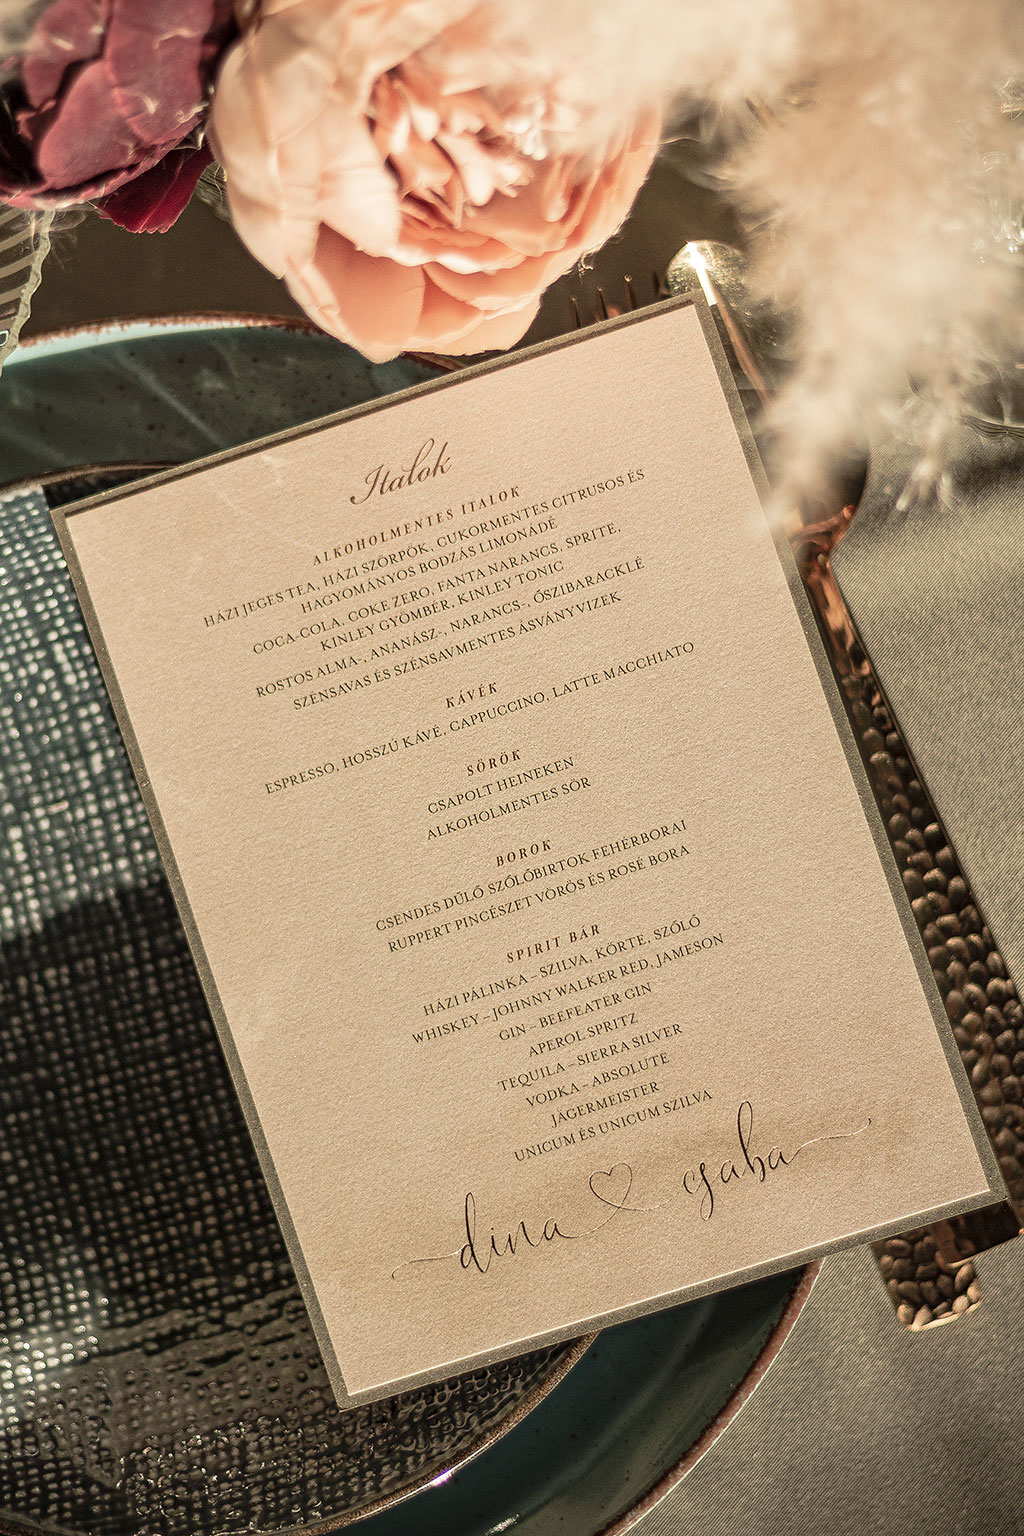 Italok
ALKOHOLMENTES ITALOK
HÁZI JEGES TEA, HÁZI SZÖRPÖK, CUKORMENTES CITRUSOS ÉS
HAGYOMÁNYOS BODZÁS LIMONÁDÉ
COCA-COLA, COKE ZERO, FANTA NARANCS, SPRITE,
KINLEY GYÖMBÉR, KINLEY TONIC
ROSTOS ALMA-, ANANÁSZ-, NARANCS-, ŐSZIBARACKLÉ
SZÉNSAVAS ÉS SZÉNSAVMENTES ÁSVÁNYVIZEK
KÁVÉK
ESPRESSO, HOSSZÚ KÁVÉ, CAPPUCCINO, LATTE MACCHIATO
SÖRÖK
CSAPOLT HEINEKEN
ALKOHOLMENTES SÖR
BOROK
CSENDES DŰLŐ SZŐLŐBIRTOK FEHÉRBORAI
RUPPERT PINCÉSZET VÖRÖS ÉS ROSÉ BORA
SPIRIT BÁR
HÁZI PÁLINKA – SZILVA, KÖRTE, SZŐLŐ
WHISKEY – JOHNNY WALKER RED, JAMESON
GIN – BEEFEATER GIN
APEROL SPRITZ
TEQUILA – SIERRA SILVER
VODKA – ABSOLUTE
JÄGERMEISTER
UNICUM ÉS UNICUM SZILVA
dina gaba